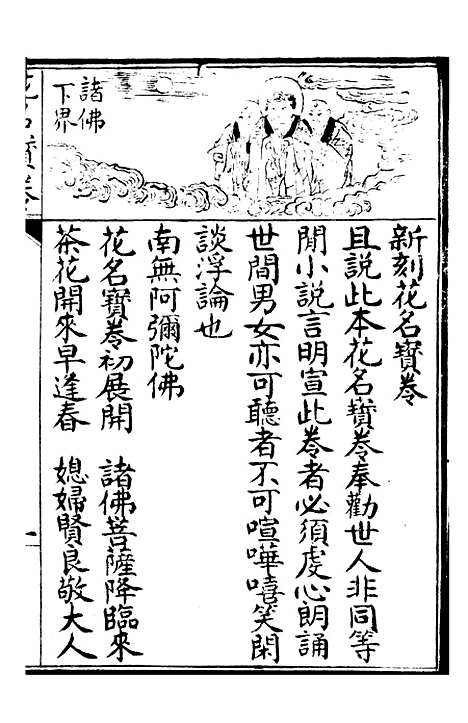 諸佛
下界
花名寶卷
新刻花名寶卷
且說此本花名寶卷奉勸世人非同等
閒小說言明宣此卷者必須虔心朗誦
世間男女亦可聽者不可喧嘩嘻笑閑
談浮論也
南無阿彌陀佛
花名寶卷初展開　諸佛菩薩降臨來
茶花開來早逢春　媳婦賢良敬大人
一